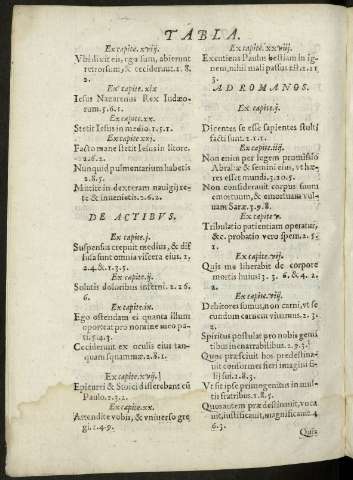 TABLA.
Ex capite. xviij.
Vbi dixit eis, ego sum, abierunt
retrorsum, & ceciderunt. 1. 8.
2.
Ex capite. xix
Iesus Nazarenus Rex Iudæo-
rum. 5. 6. 1.
Ex capite. xx.
Stetit Iesus in medio. 1. 5. 1.
Ex capite. xxj.
Facto mane stetit Iesus in litore.
2. 6. 2.
Nunquid pulmentarium habetis
2. 8. 5.
Mittite in dexteram nauigij re-
te & inuenietis. 2. 6. 2.
DE ACTIBVS.
Ex capite. j.
Suspensus crepuit medius, & dif
fusa sunt omnia viscera eius. 2.
2. 4. & 1. 3. 5.
Ex capite. ij.
Solutis doloribus inferni. 2. 2 6.
6.
Ex capite. ix.
Ego ostendam ei quanta illum
oporteat pro nomine meo pa-
ti. 5. 4. 3.
Ceciderunt ex oculis eius tan-
quam squammæ. 2. 8. 1.
Ex capite. xvij.
Epicurei & Stoici disserebant cū
Paulo. 2. 3. 2.
Ex capite. xx.
Attendite vobis, & vniuerso gre
gi. 1. 4. 9.
Ex capite. xxviij.
Excutiens Paulus bestium in ig-
nem, nihil mali passus est. 2. 2 1
3.
AD ROMANOS.
Ex capite. j.
Dicentes se esse sapientes stulti
facti sunt. 2. 1 1.
Ex capite. iiij.
Non enim per legem promissio
Abrahæ & semini eius, vt hæ-
res esset mundi. 3. 2 0. 5.
Non considerauit corpus suum
emortuum, & emortuam vul-
uam Saræ. 3. 9. 8.
Ex capite v.
Tribulatio patientiam operatur,
&c. probatio vero spem. 2. 5-
1.
Ex capite. vij.
Quis me liberabit de corpore
mortis huius? 3. 3. 6. & 4. 2.
2.
Ex capite. viij.
Debitores sumus, non carni, vt se
cundum carnem viuamus. 2. 3-
2.
Spiritus postulat pro nobis gemi
tibus inenarrabilibus. 2. 9. 3.
Quos præsciuit hos prędestina-
uit conformes fieri imagini fi-
lij sui. 2. 8. 3.
Vt sit ipse primogenitus in mul-
tis fratribus. 2. 8. 5.
Quos autem prædestinauit, voca
uit, iustificauit, magnificauit. 4
6. 3.
Quis